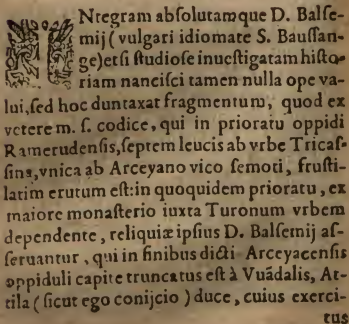 INtegram absolutamque D. Balse-
mij (vulgari idiomate S. Baussan-
ge) etsi studiose inuestigatam histo-
riam nancisci tamen nulla ope va-
lui, sed hoc duntaxat fragmentum, quod ex
vetere m. s. codice, qui in prioratu oppidi
Ramerudensis, septem leucis ab vrbe Tricas-
sina, vnica ab Arceyano vico semoti, frusti-
latim erutum est: in quoquidem prioratu, ex
maiore monasterio iuxta Turonum vrbem
dependente, reliquiæ ipsius D. Balsemij as-
seruantur, qui in finibus dicti Arceyacensis
oppiduli capite truncatus est à Vuãdalis, At-
tila (sicut ego conijcio) duce, cuius exerci-
tus